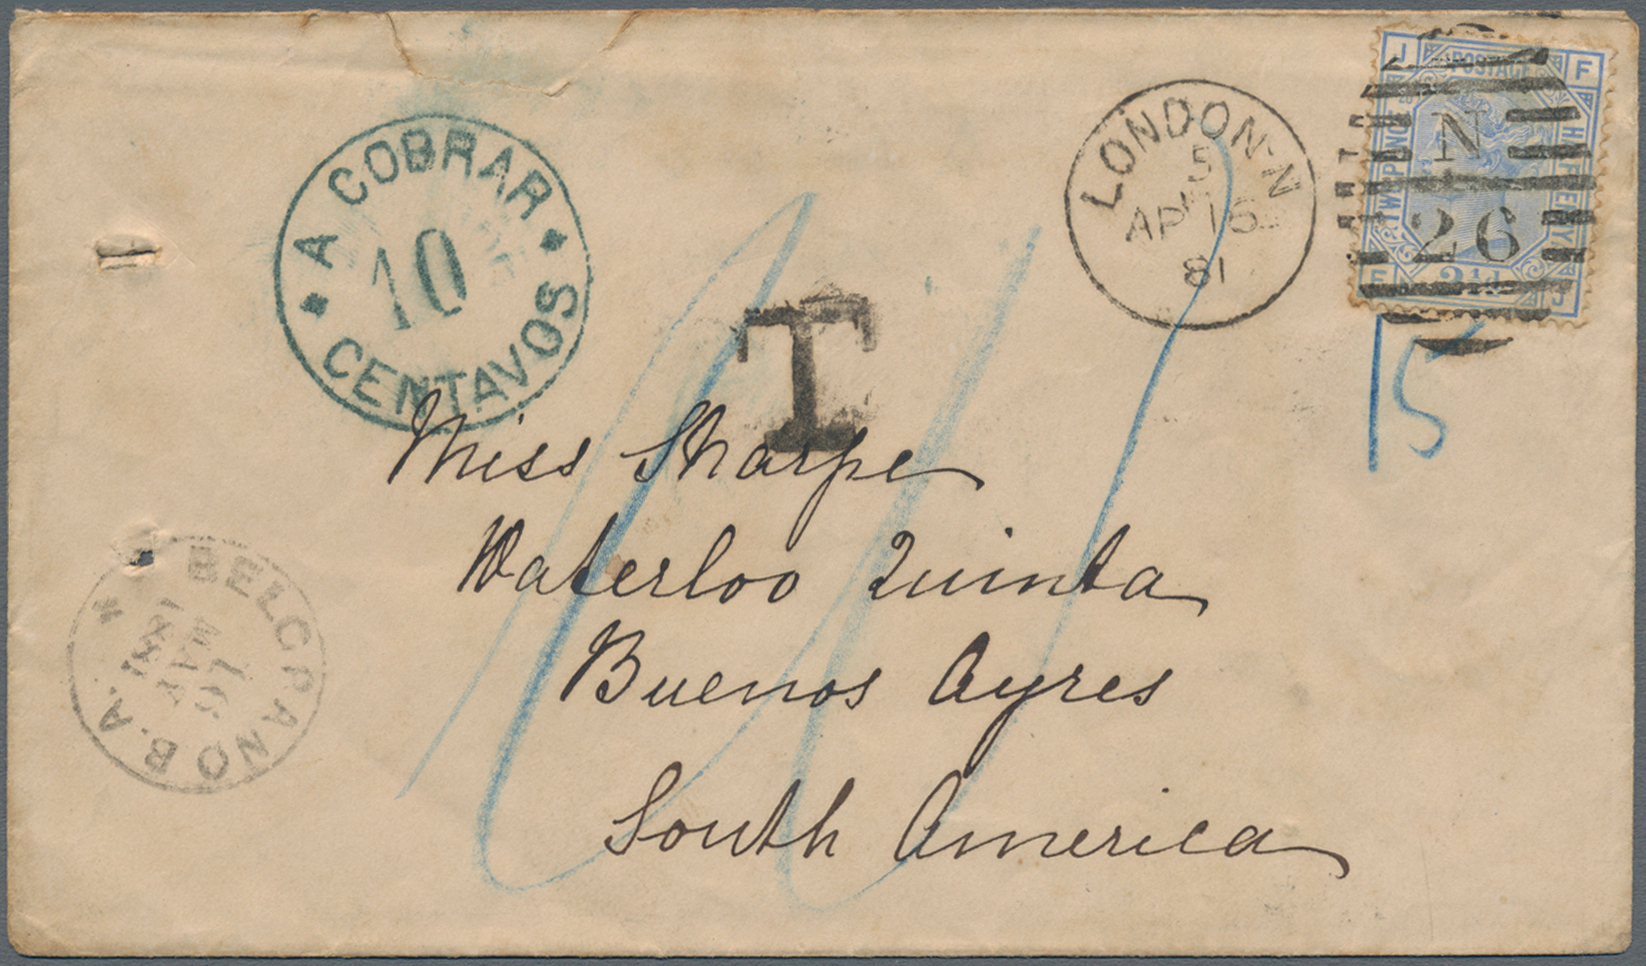 A COBRAR
10
CENTAVOS
LONDON·N
5
AP 15
81
J POSTAGE F
TWOPENCE
HALFPENNY
2½d
F J
N
26
T
15
Miss Sharpe
Waterloo Quinta
Buenos Ayres
South America
BELGRANO B.A.